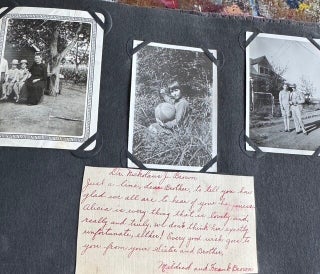 Dr. Nickolaus J. Brown
Just a line, dear Brother, to tell you how
glad we all are to hear of your
Alicia is every thing that is lovely and,
really and truly, we don't think her
unfortunate, either! Every good wish goes to
you from your Sister and Brother,
Mildred and Frank Brown